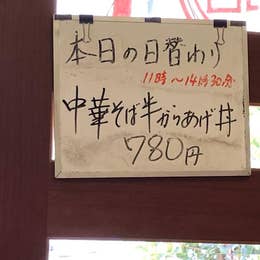 本日の日替わり
11時～14時30分
中華そば半からあげ丼
780円